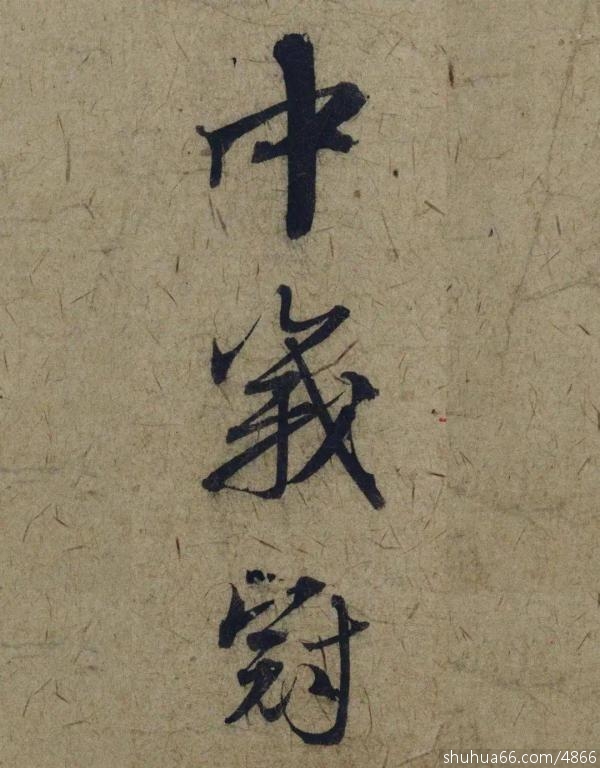 中
義
冠
shuhua66.com/4866